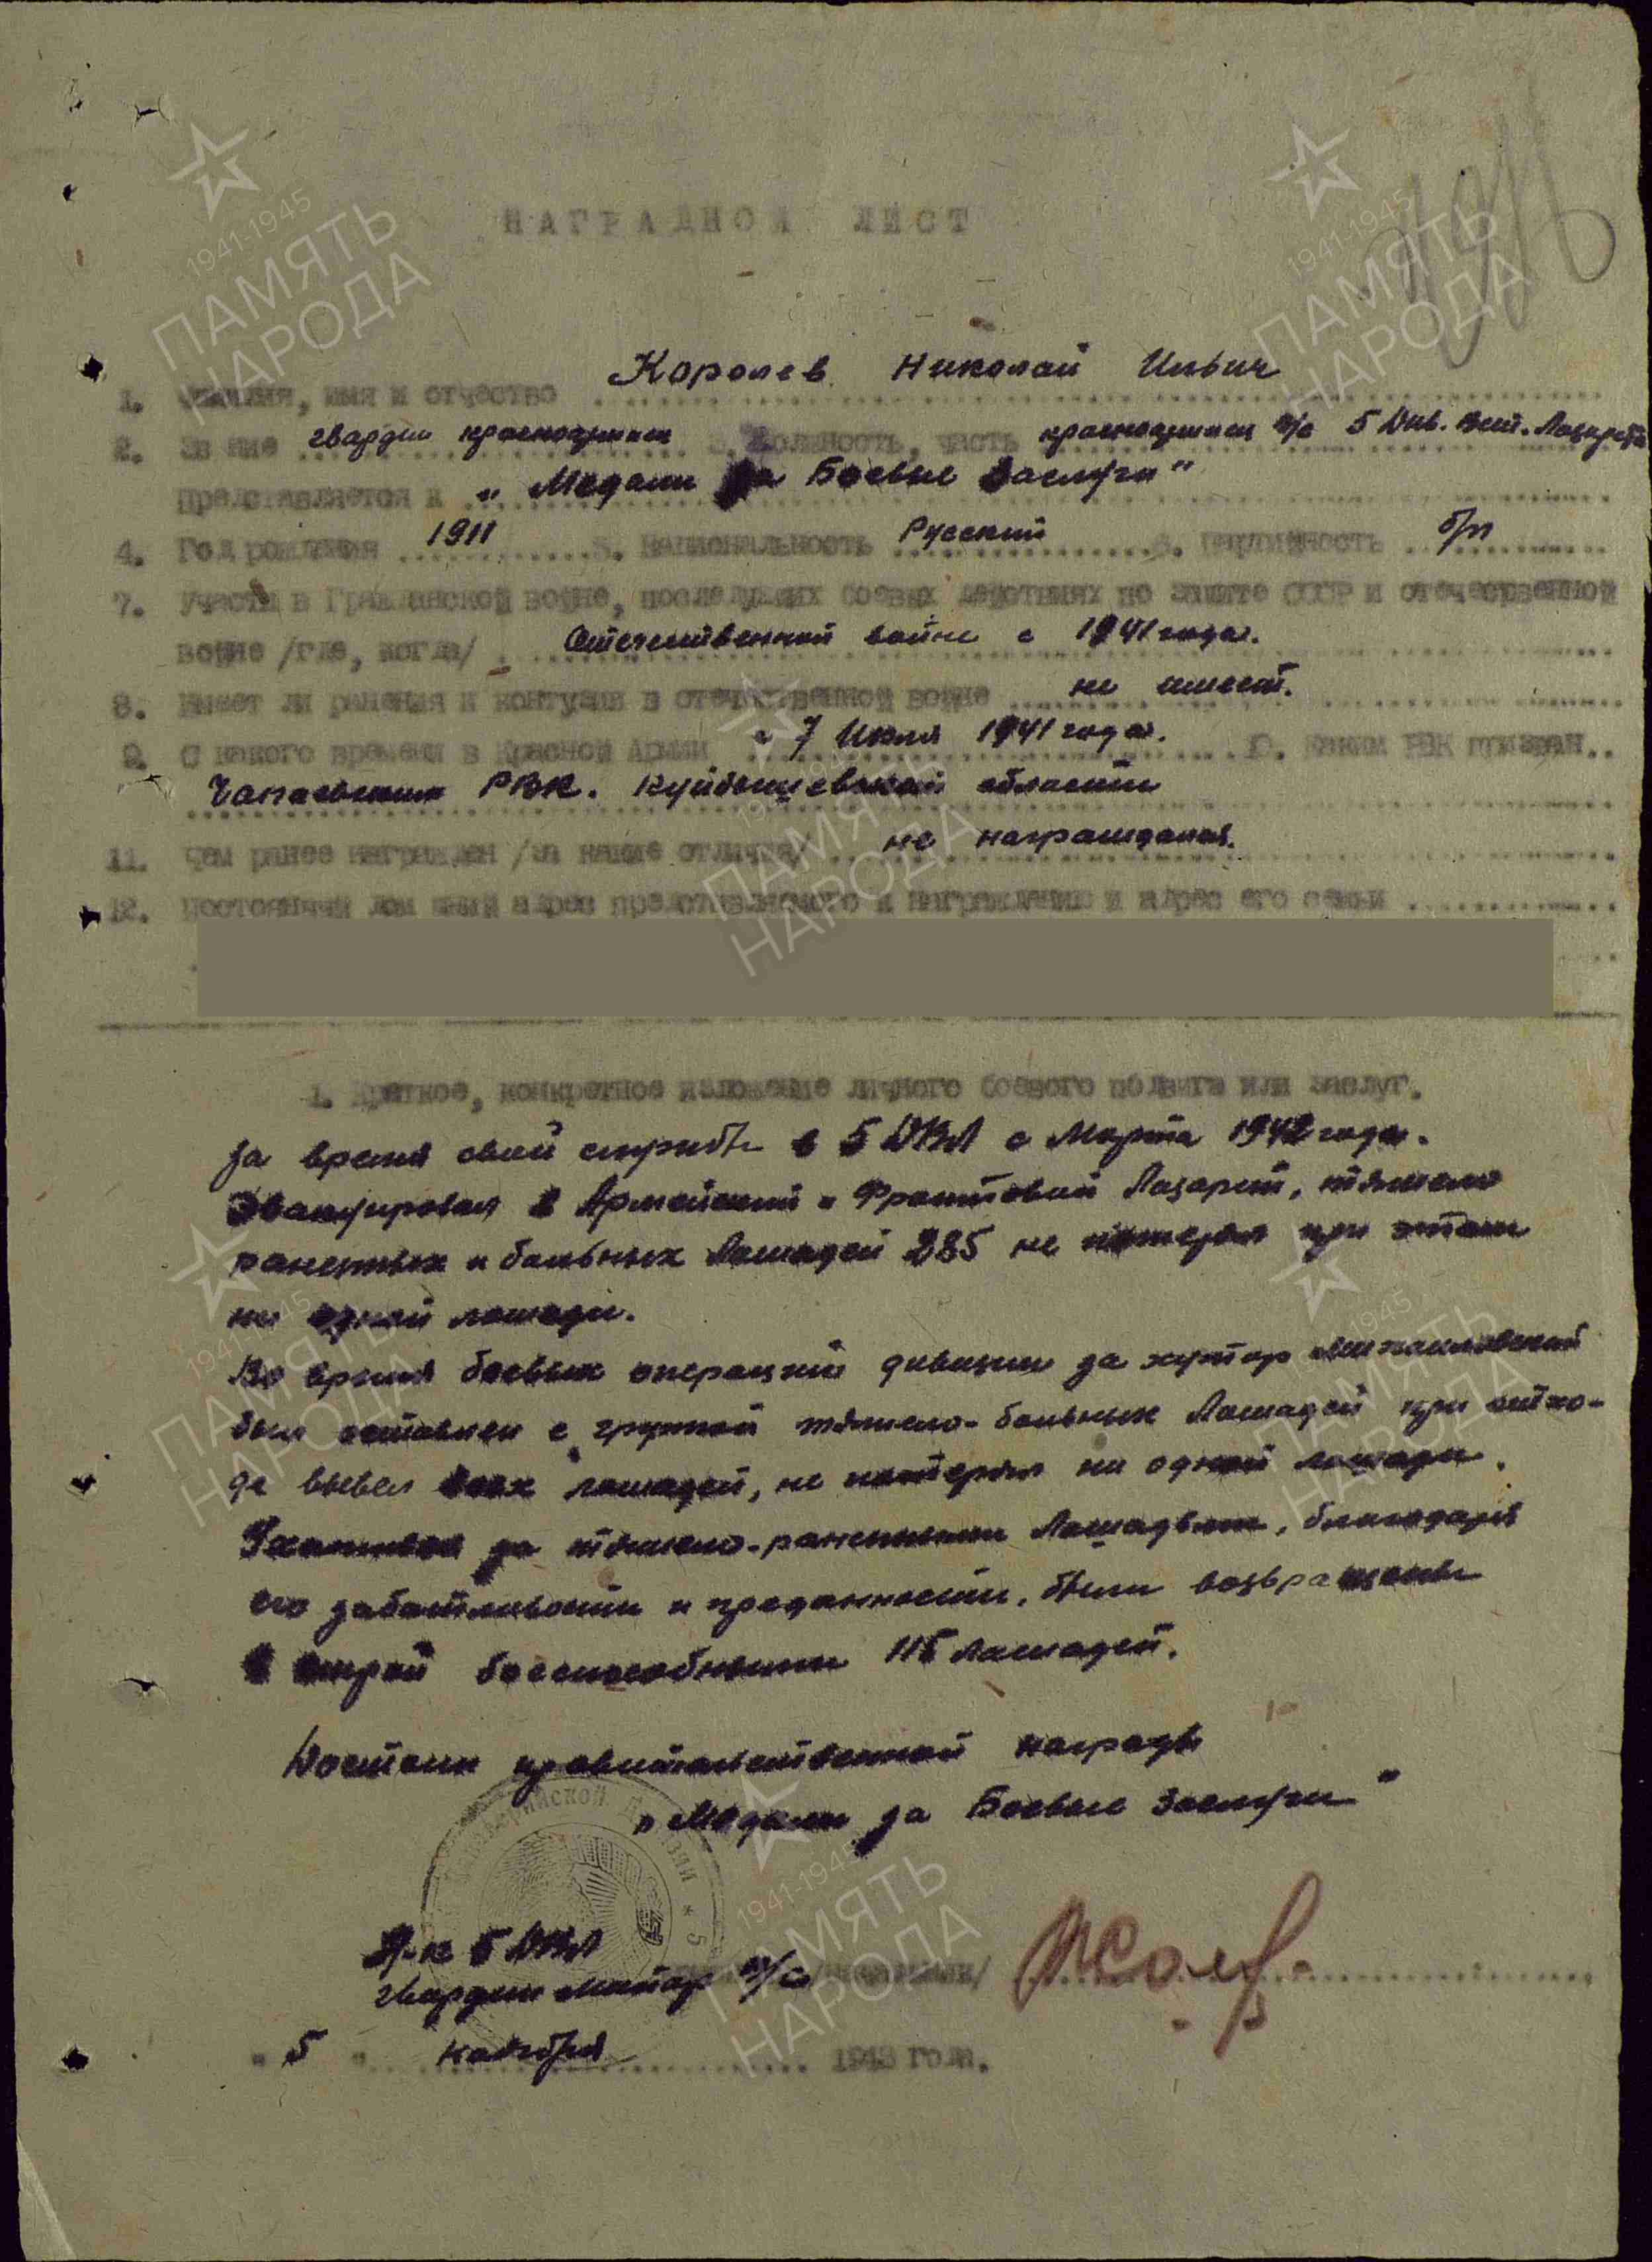 НАГРАДНОЙ ЛИСТ
1. Фамилия, имя и отчество Королев Николай Ильич
2. Звание гвардии красноармеец 3. Должность, часть красноармеец в/с 5 Див. Вет. Лазарета
Представляется к „Медали За Боевые Заслуги"
4. Год рождения 1911 5. Национальность Русский 6. Партийность б/п
7. Участи в Гражданской войне, последующих боевых действиях по защите СССР и отечественной
войне /где, когда/ Отечественной войне с 1941 года.
8. Имеет ли ранения и контузии в отечественной войне не имеет.
9. С какого времени в Красной Армии с 7 Июля 1941 года. 10. Каким РВК призван..
Чапаевским РВК. Куйбышевской области
11. Чем ранее награжден /за какие отличия/ не награждался.
12. Постоянный домашний адрес представляемого к награждению и адрес его семьи
1. Краткое, конкретное изложение личного боевого подвига или заслуг.
За время свей службы в 5 ДВЛ с Марта 1942 года.
Эвакуировал в Армейский и Фронтовой Лазарет, тяжело
раненных и больных Лошадей 285 не потерял при этом
ни одной лошади.
Во время боевых операций дивизии за хутор Михайловский
был оставлен с группой тяжело-больных Лошадей при отхо-
де вывел всех лошадей, не потерял ни одной лошади.
Ухаживая за тяжело-раненными Лошадьми, благодаря
его заботливости и преданности, были возвращены
в строй боеспособными 115 Лошадей.
Достоин правительственной награды
„Медали за Боевые Заслуги"
Н-к 5 ДВЛ
гвардии Майор в/с
"5" ноября 1943 года.
1941-1945
ПАМЯТЬ
НАРОДА